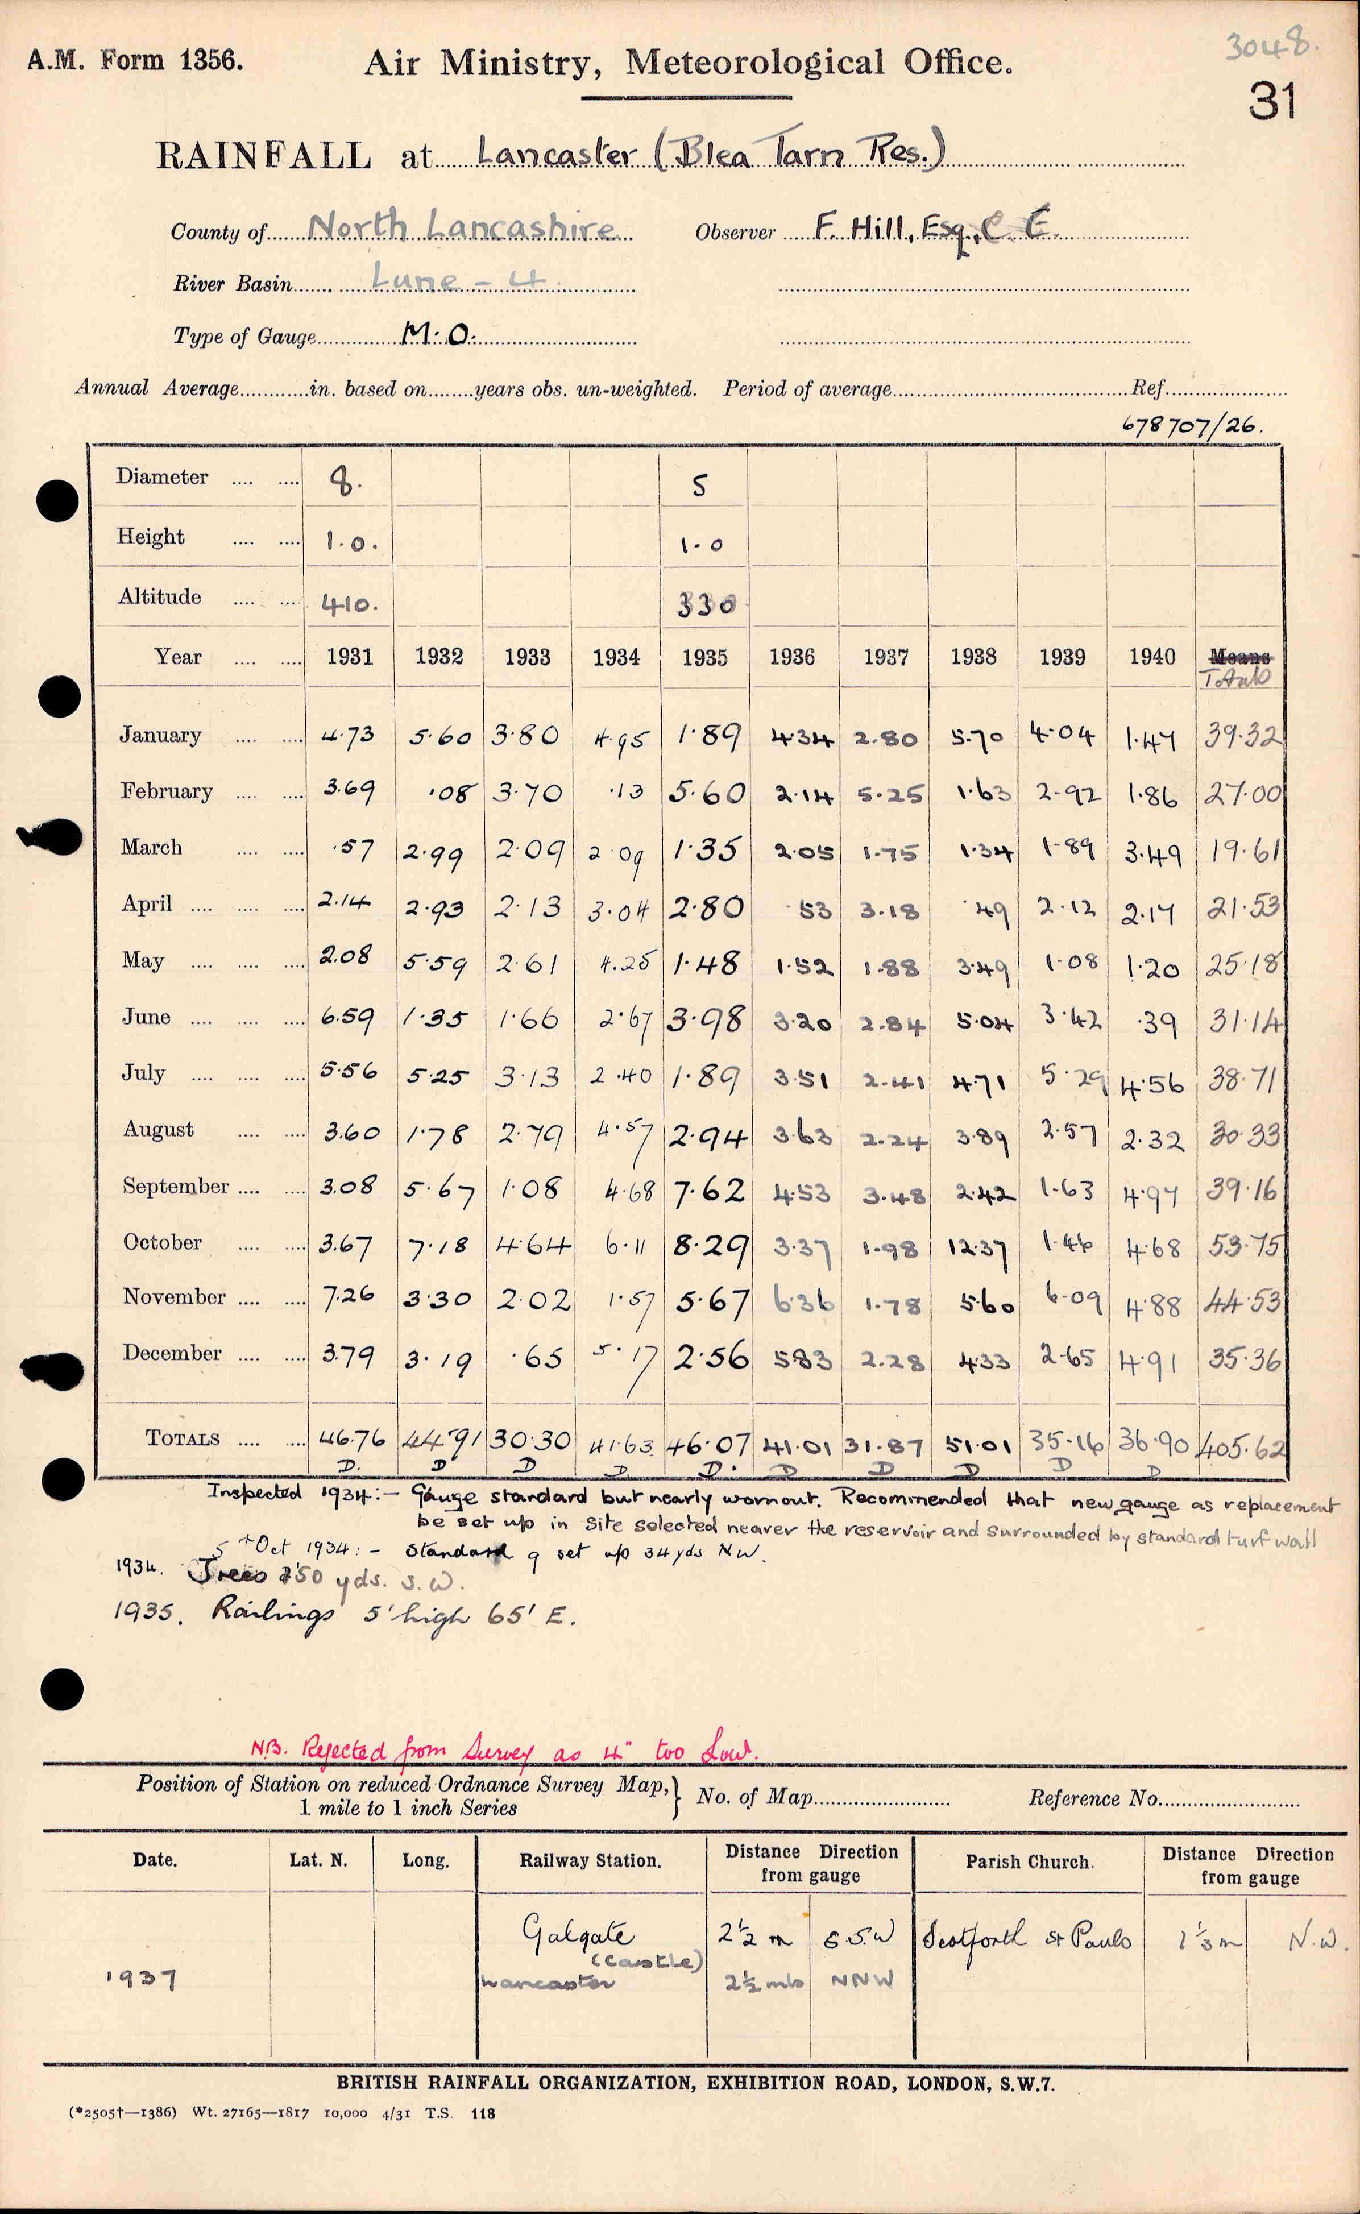 3048.
A.M. Form 1356. Air Ministry, Meteorological Office.
31
RAINFALL at Lancaster (Blea Tarn Res.)
County of North Lancashire Observer F. Hill, Esq., C.E.
River Basin Lune - 4
Type of Gauge M.O.
Annual Average............in. based on........years obs. un-weighted. Period of average............Ref............
678707/26.
Diameter .... .... 8. 5
Height .... .... 1.0. 1.0
Altitude .... .... 410. 330
Year .... .... 1931 1932 1933 1934 1935 1936 1937 1938 1939 1940 Means
Totals
January .... .... 4.73 5.60 3.80 4.95 1.89 4.34 2.80 5.70 4.04 1.47 39.32
February .... .... 3.69 .08 3.70 .13 5.60 2.14 5.25 1.63 2.92 1.86 27.00
March .... .... .57 2.99 2.09 2.09 1.35 2.05 1.75 1.34 1.89 3.49 19.61
April .... .... .... 2.14 2.93 2.13 3.04 2.80 .53 3.18 .49 2.12 2.17 21.53
May .... .... .... 2.08 5.59 2.61 4.25 1.48 1.52 1.88 3.49 1.08 1.20 25.18
June .... .... .... 6.59 1.35 1.66 2.67 3.98 3.20 2.84 5.04 3.42 .39 31.14
July .... .... .... 5.56 5.25 3.13 2.40 1.89 3.51 2.41 4.71 5.29 4.56 38.71
August .... .... 3.60 1.78 2.79 4.57 2.94 3.63 2.24 3.89 2.57 2.32 30.33
September .... .... 3.08 5.67 1.08 4.68 7.62 4.53 3.48 2.42 1.63 4.97 39.16
October .... .... 3.67 7.18 4.64 6.11 8.29 3.37 1.98 12.37 1.46 4.68 53.75
November .... .... 7.26 3.30 2.02 1.57 5.67 6.36 1.78 5.60 6.09 4.88 44.53
December .... .... 3.79 3.19 .65 5.17 2.56 5.83 2.28 4.33 2.65 4.91 35.36
TOTALS .... .... 46.76 44.91 30.30 41.63 46.07 41.01 31.87 51.01 35.16 36.90 405.62
D. D D D D. D D D D D
Inspected 1934:- Gauge standard but nearly wornout. Recommended that new gauge as replacement
be set up in site selected nearer the reservoir and surrounded by standard turf wall
5th Oct 1934:- Standard g set up 34 yds NW.
1934. Trees 50 yds. S.W.
1935. Railings 5' high 65' E.
N.B. Rejected from Survey as 4" too Low.
Position of Station on reduced Ordnance Survey Map,} No. of Map............ Reference No............
1 mile to 1 inch Series
Date. Lat. N. Long. Railway Station. Distance Direction from gauge Parish Church. Distance Direction from gauge
Galgate 2½ m S.S.W Scotforth St Pauls 1⅓ m N.W.
(Castle)
1937 Lancaster 2½ mls NNW
BRITISH RAINFALL ORGANIZATION, EXHIBITION ROAD, LONDON, S.W.7.
(*2505†—1386) Wt. 27165—1817 10,000 4/31 T.S. 118